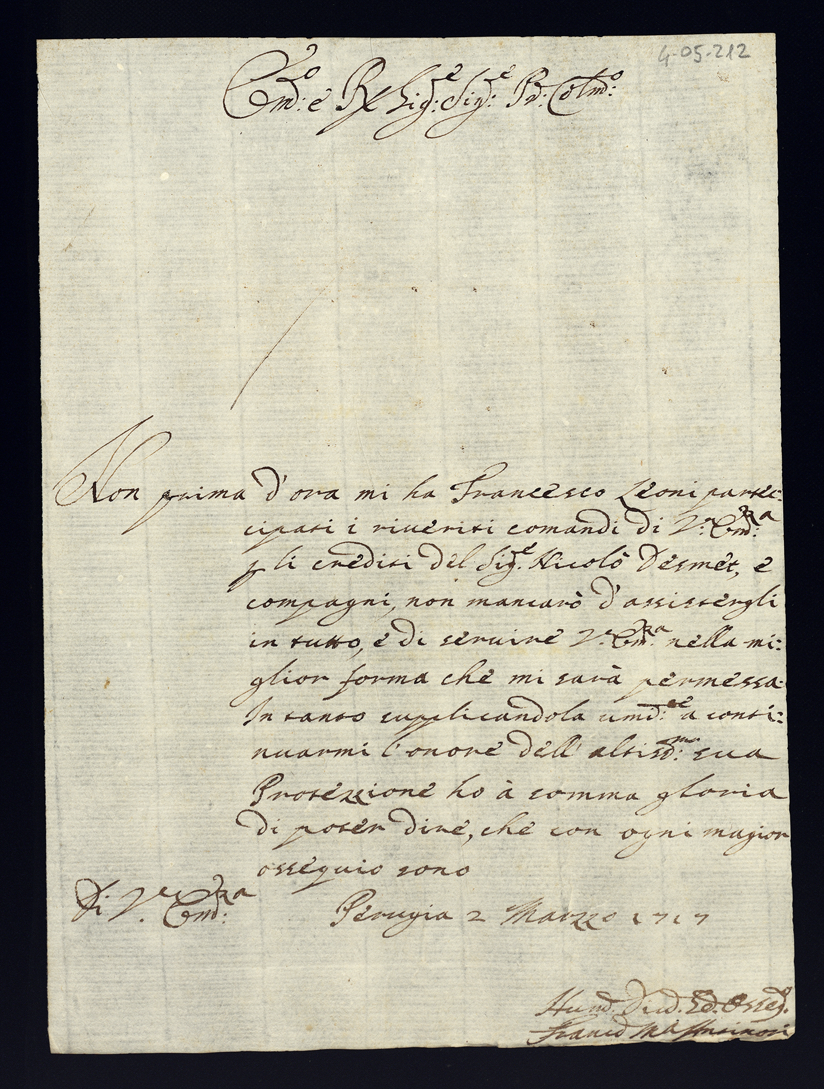 4-05-212
Em:º e R Sig:e Sig:e Pñ: Colmº:
Non prima d'ora mi ha Francesco Leoni parte:
cipati i riveriti comandi di V.ª Em:za
p li crediti del Sig.e Nicolò Desmet, e
compagni, non mancarò d'assistergli
in tutto, e di seruire V.ª Em:za nella mi:
glior forma che mi sarà permessa.
In tanto supplicandola umd:e a conti:
nuarmi l'onore dell' altisd:ma sua
Protezzione ho à somma gloria
di poter dire, che con ogni magior
ossequio sono
Di V.ª Em:za
Perugia 2 Marzo 1717
Hum. Diud. Ed. Osseq.
Franc Mª